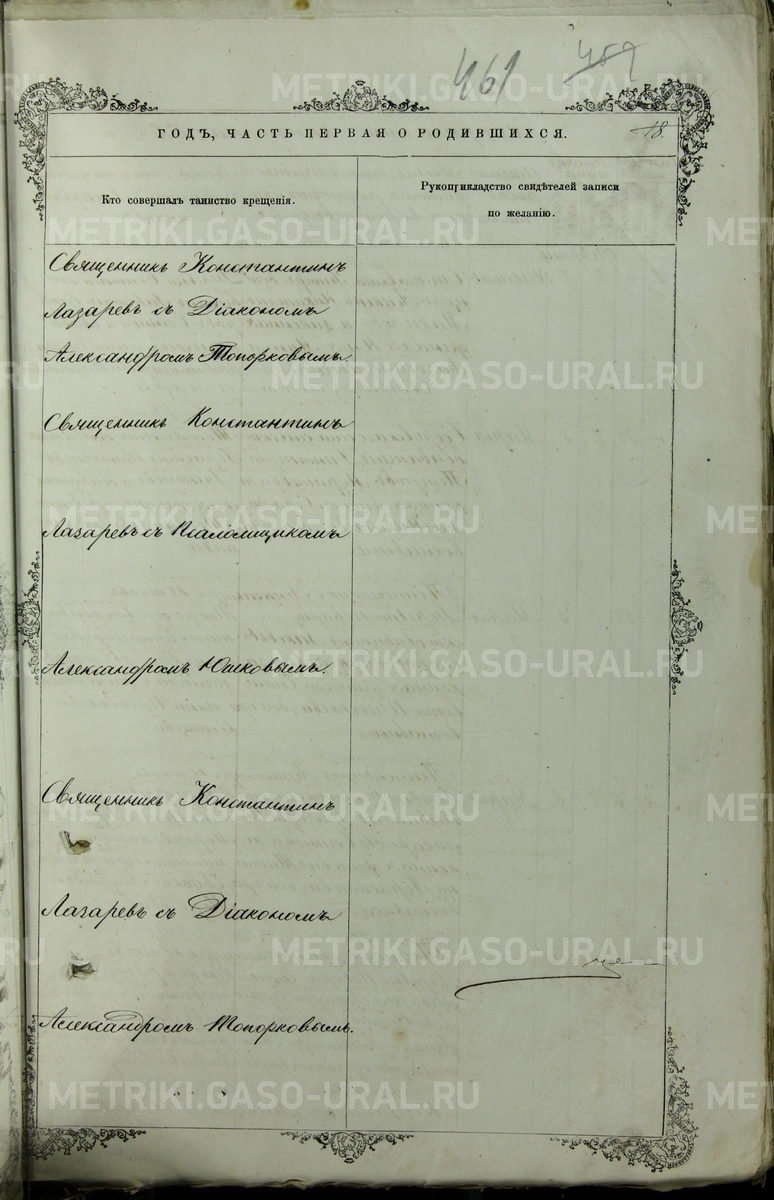 461 459
ГОДЪ, ЧАСТЬ ПЕРВАЯ О РОДИВШИХСЯ. 18.
Кто совершалъ таинство крещенія.
Рукоприкладство свидѣтелей записи
по желанію.
Священникъ Константинъ
Лазаревъ съ Діакономъ
Александромъ Топорковымъ.
Священникъ Константинъ
Лазаревъ съ Псаломщикомъ
Александромъ Юшковымъ.
Священникъ Константинъ
Лазаревъ съ Діакономъ
Александромъ Топорковымъ.
METRIKI.GASO-URAL.RU